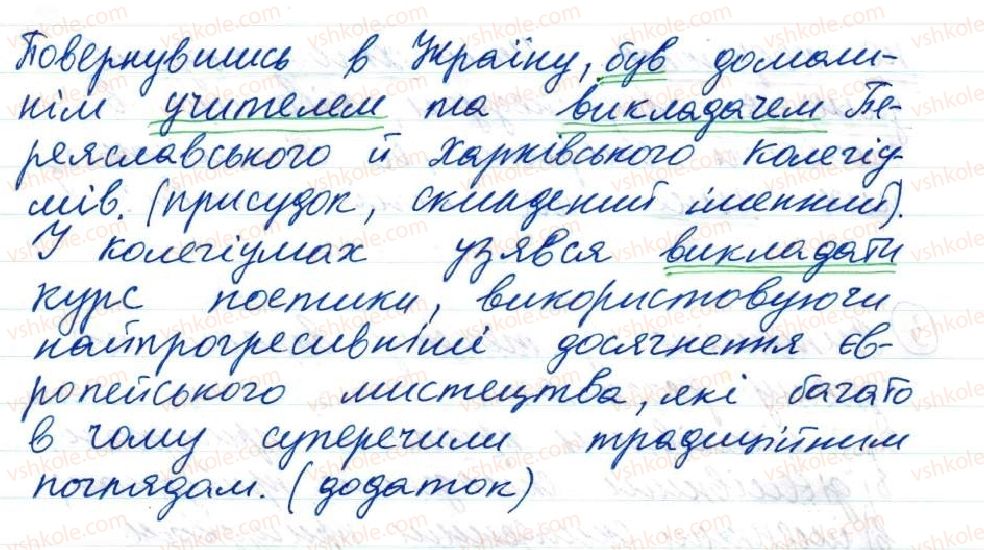 Повернувшись в Україну, був домаш-
нім учителем та викладачем Пе-
реяславського й Харківського колегіу-
мів. (присудок, складений іменний).
У колегіумах узявся викладати
курс поетики, використовуючи
найпрогресивніші досягнення єв-
ропейського мистецтва, які багато
в чому суперечили традиційним
поглядам. (додаток)